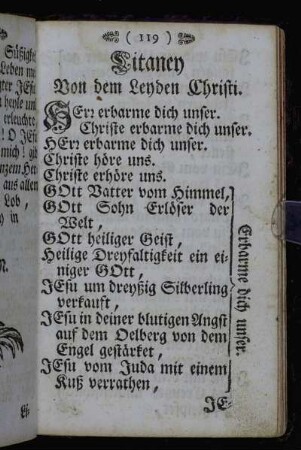 Süßigke
Leben me
gter JEsu
n heyle un
erleuchte
! O JEsu
mich! gib
nzem Her
aus allen
Lob,
y in
N.
Li-
( 119 )
Litaney
Von dem Leyden Christi.
HErr erbarme dich unser.
Christe erbarme dich unser.
HErr erbarme dich unser.
Christe höre uns.
Christe erhöre uns.
GOtt Vatter vom Himmel,
GOtt Sohn Erlöser der
Welt,
GOtt heiliger Geist,
Heilige Dreyfaltigkeit ein ei-
niger GOtt,
JEsu um dreyßig Silberling
verkauft,
JEsu in deiner blutigen Angst
auf dem Oelberg von dem
Engel gestärket,
JEsu vom Juda mit einem
Kuß verrathen,
Erbarme dich unser.
JE-